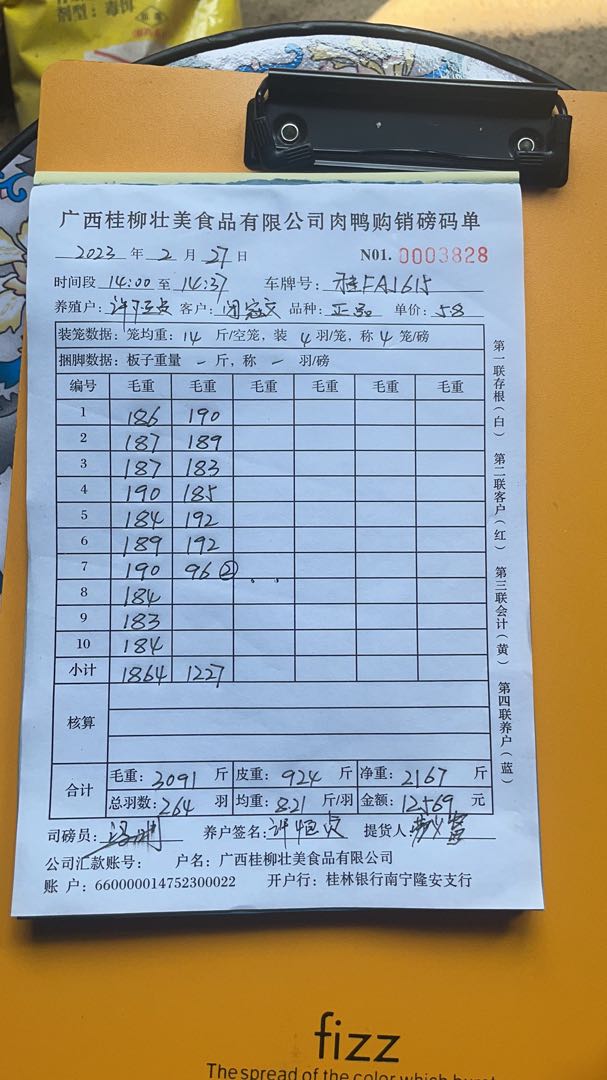 剂型：毒饵
广西桂柳壮美食品有限公司肉鸭购销磅码单
2023 年 2 月 27 日 N01. 0003828
时间段 14:00 至 14:37 车牌号：桂FA1615
养殖户： 客户： 品种：正品 单价：58
装笼数据：笼均重：14 斤/空笼，装 4 羽/笼，称 4 笼/磅
捆脚数据：板子重量 一 斤，称 一 羽/磅
编号 毛重 毛重 毛重 毛重 毛重 毛重
1 186 190
2 187 189
3 187 183
4 190 185
5 184 192
6 189 192
7 190 96 ②
8 184
9 183
10 184
小计 1864 1227
核算
合计 毛重：3091 斤 皮重：924 斤 净重：2167 斤
总羽数：264 羽 均重：8.21 斤/羽 金额：12569 元
司磅员： 养户签名：许恒贞 提货人：
公司汇款账号： 户名：广西桂柳壮美食品有限公司
账 户：660000014752300022 开户行：桂林银行南宁隆安支行
第一联存根（白） 第二联客户（红） 第三联会计（黄） 第四联养户（蓝）
fizz
The spread of the color which